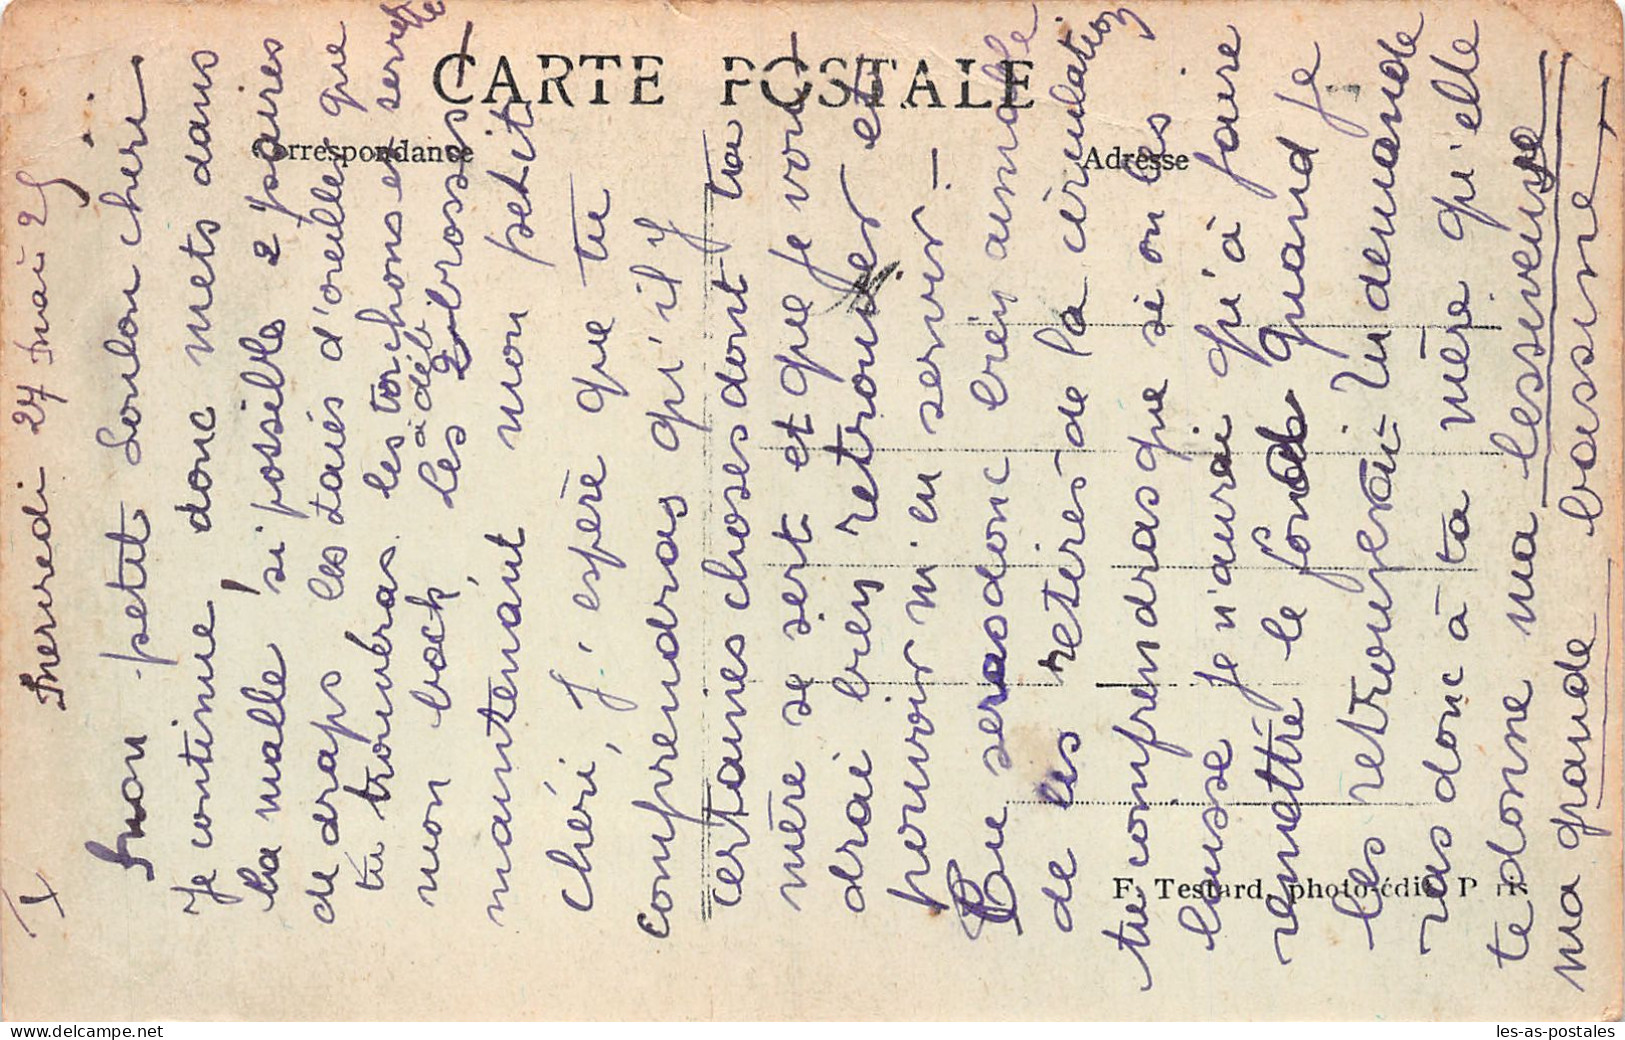 I
Mercredi 27 mai 25
Mon petit Loulou chéri
Je continue, donc mets dans
la malle, si possible 2 paires
de draps les taies d'oreilles que
tu trouveras, les torchons et serviettes
à déb
mon bock, les 2 brosses
maintenant mon petit
chéri, j'espère que tu
comprendras qu'il y
certaines choses dont ta
mère se sert et que je vou
drai bien retrouver et
pouvoir m'en servir.
Tu seras donc bien aimable
de les retirer de la circulation
tu comprendras que si on les
laisse je n'aurai qu'à faire
remettre le fond quand je
les retrouverai. Tu demande
ras donc à ta mère qu'elle
te donne ma lessiveuse
ma grande bassine
CARTE POSTALE
Correspondance
Adresse
F. Testard, photo-édit. Paris
les-as-postales.com
les-as-postales